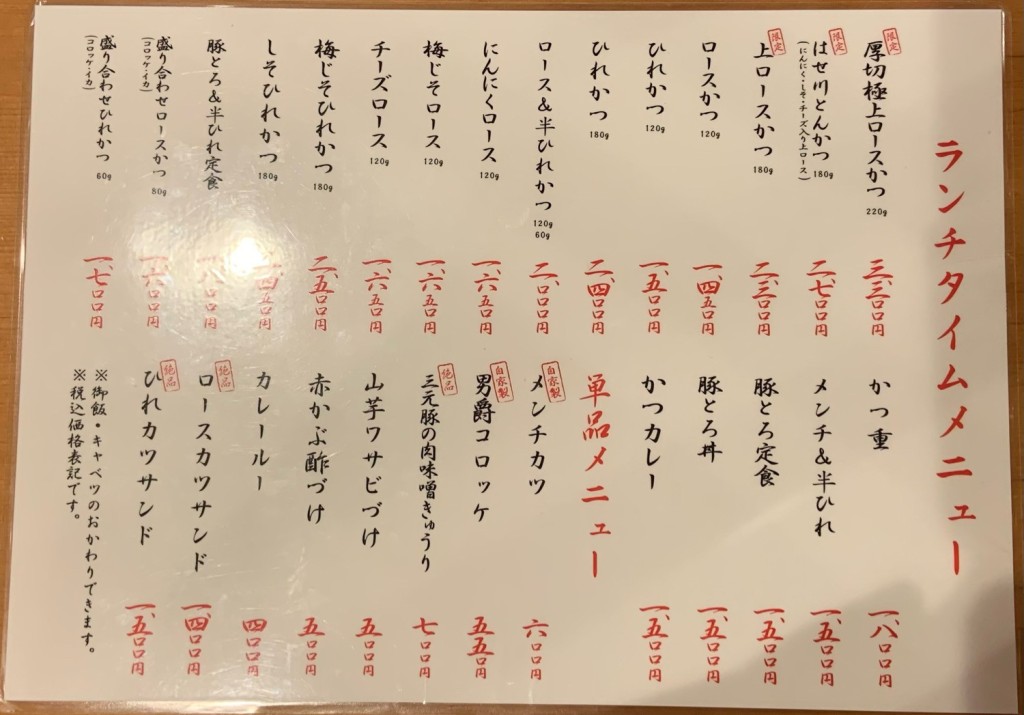 ランチタイムメニュー
限定
厚切極上ロースかつ 220g 三、三〇〇円
限定
はせ川とんかつ 180g 二、七〇〇円
(にんにく・しそ・チーズ入り上ロース)
限定
上ロースかつ 180g 二、三〇〇円
ロースかつ 120g 一、四五〇円
ひれかつ 120g 一、五〇〇円
ひれかつ 180g 二、四〇〇円
ロース&半ひれかつ 120g 60g 二、〇〇〇円
にんにくロース 120g 一、六五〇円
梅じそロース 120g 一、六五〇円
チーズロース 120g 一、六五〇円
梅じそひれかつ 180g 二、五〇〇円
しそひれかつ 180g 二、四五〇円
豚とろ&半ひれ定食 一、八〇〇円
盛り合わせロースかつ 80g 一、六〇〇円
(コロッケ・イカ)
盛り合わせひれかつ 60g 一、七〇〇円
(コロッケ・イカ)
かつ重 一、八〇〇円
メンチ&半ひれ 一、五〇〇円
豚とろ定食 一、五〇〇円
豚とろ丼 一、五〇〇円
かつカレー 一、五〇〇円
単品メニュー
自家製
メンチカツ 六〇〇円
自家製
男爵コロッケ 五五〇円
絶品
三元豚の肉味噌きゅうり 七〇〇円
山芋ワサビづけ 五〇〇円
赤かぶ酢づけ 五〇〇円
カレールー 四〇〇円
絶品
ロースカツサンド 一、四〇〇円
絶品
ひれカツサンド 一、五〇〇円
※御飯・キャベツのおかわりできます。
※税込価格表記です。